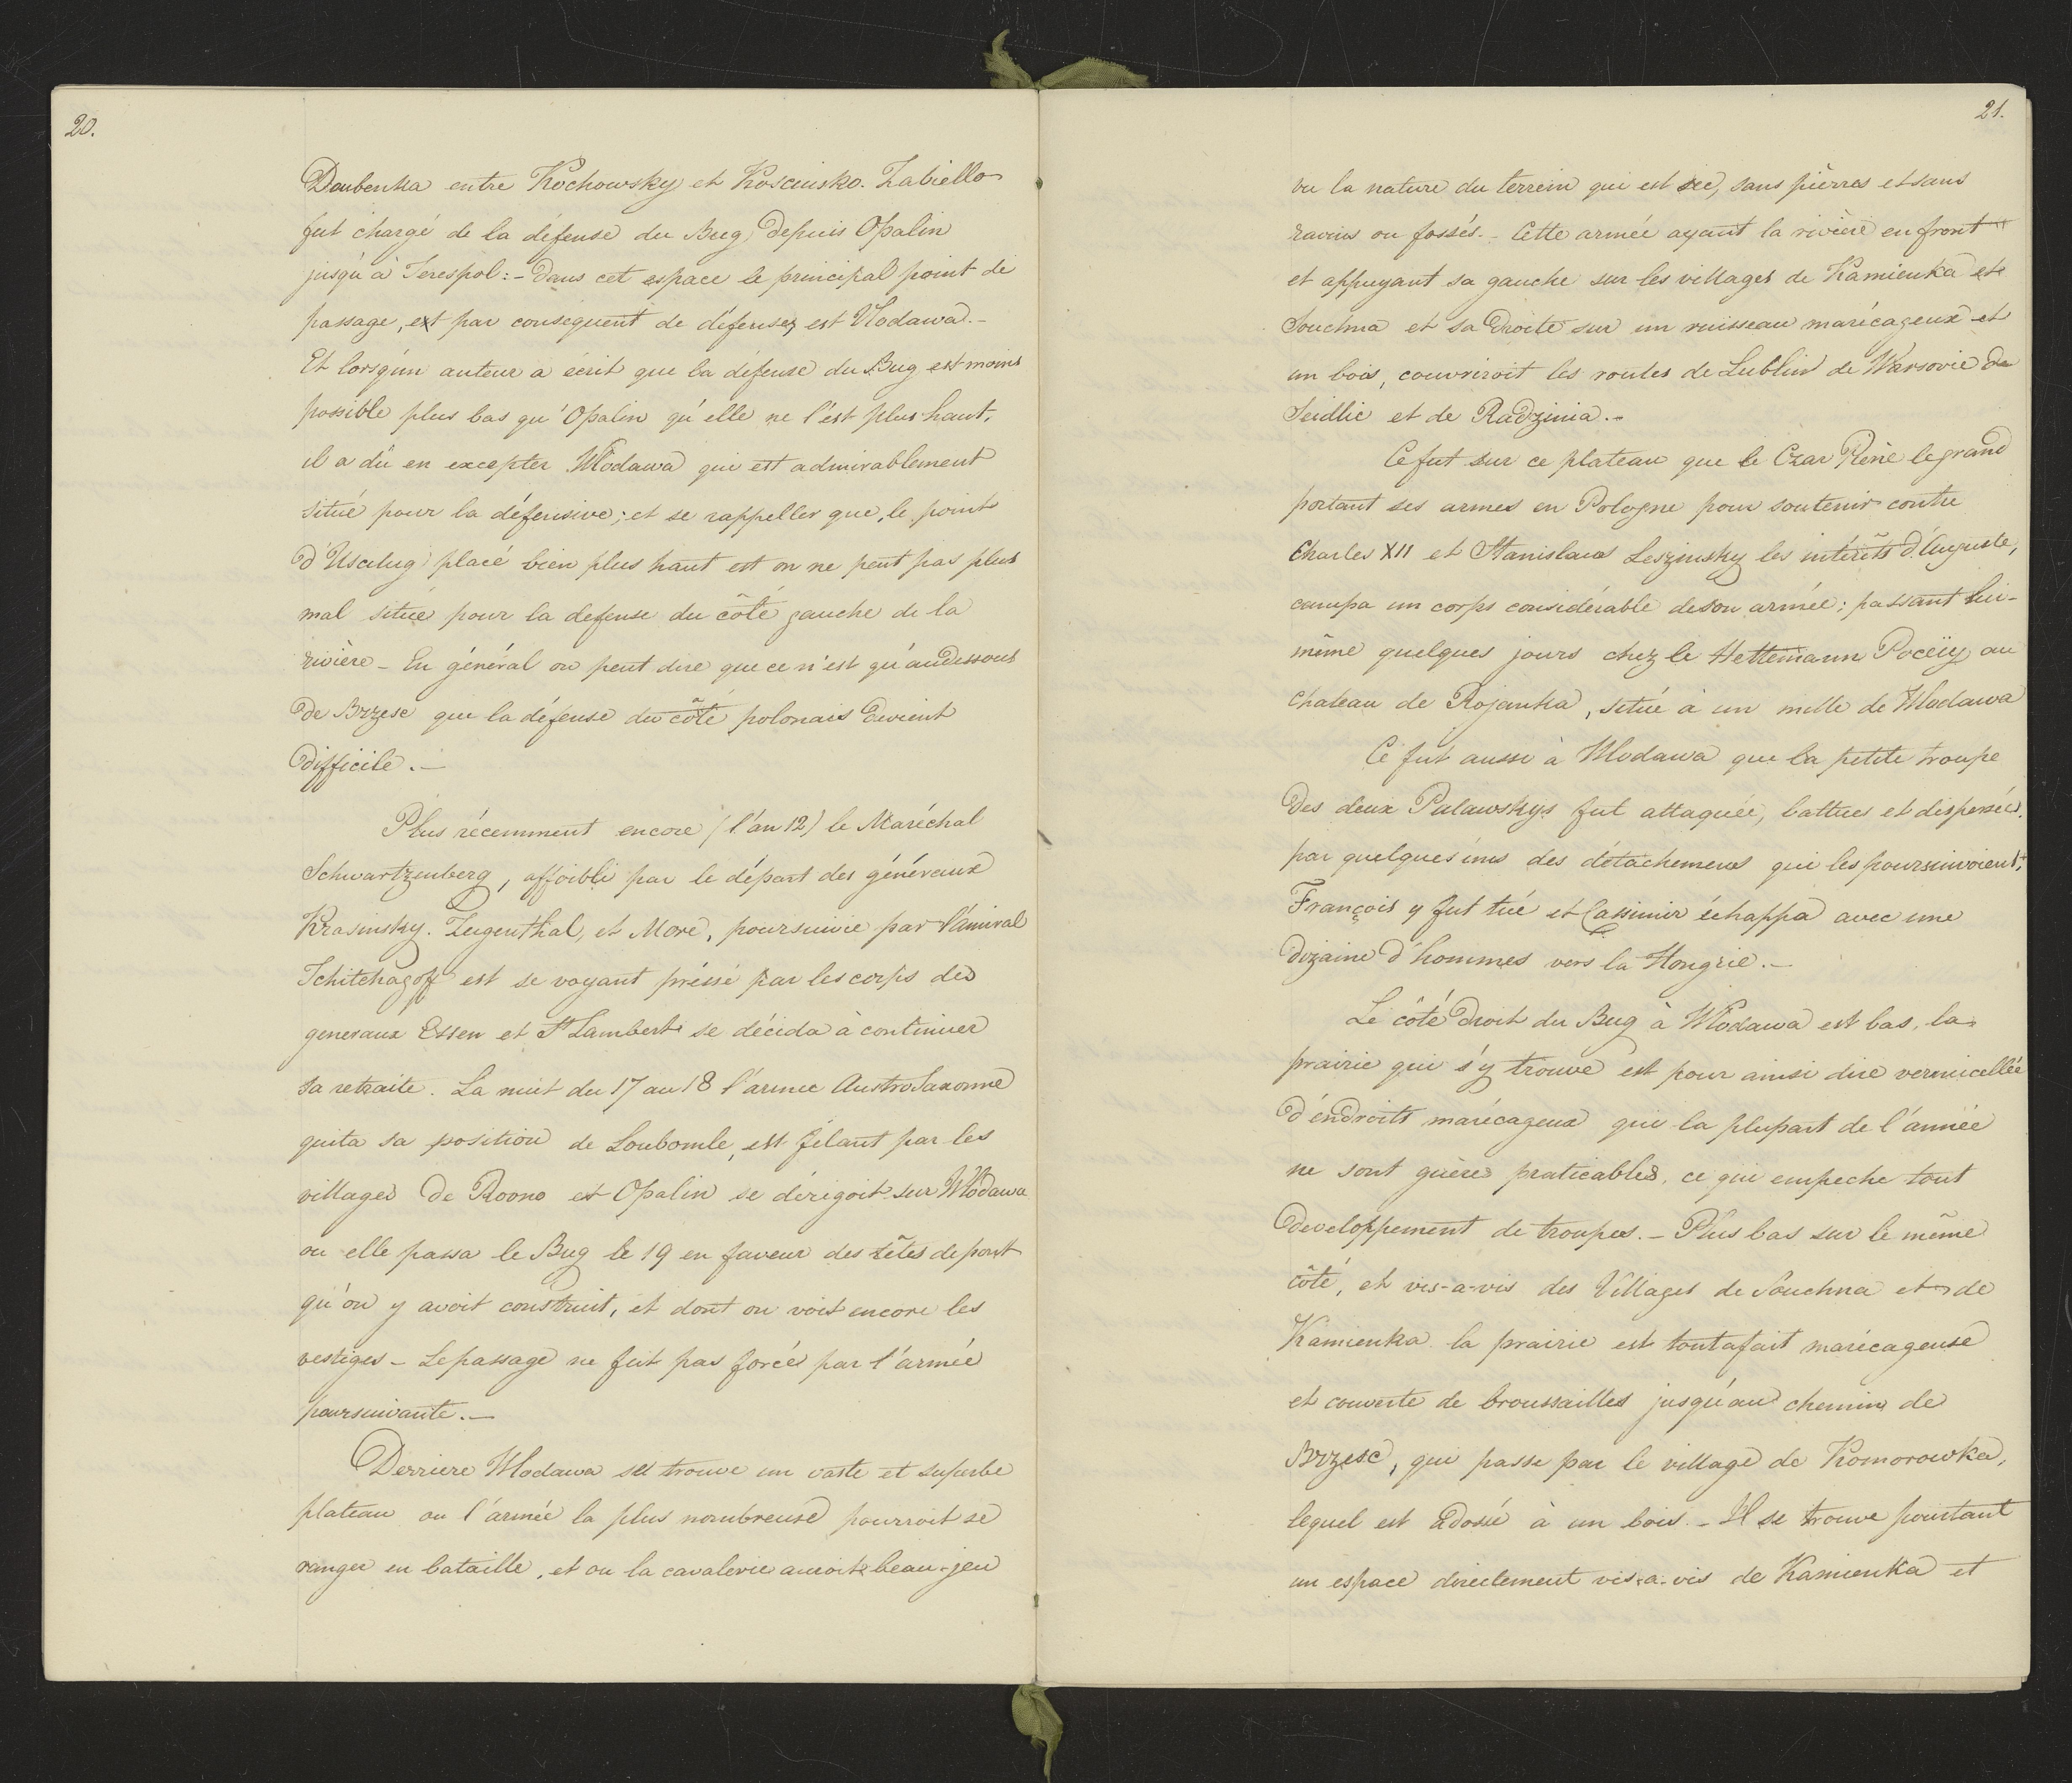 20.
Doubenka entre Kochowsky et Kosciusko. Zabiello
fut chargé de la défense du Bug, depuis Opalin
jusqu'à Terespol:- dans cet espace le principal point de
passage, ext par consequent de défense, est Wlodawa.-
Et lorsqu'un auteur a écrit que la défense du Bug est moins
possible plus bas qu'Opalin qu'elle ne l'est plus haut,
il a dû en excepter Wlodawa qui est admirablement
situé pour la défensive; et se rappeller que, le point
d'Uscilug placé bien plus haut est on ne peut pas plus
mal situé pour la defense du côté gauche de la
rivière - En général on peut dire que ce n'est qu'audessous
de Brzesc que la défense du côté polonais devient
difficile.-
Plus récemment encore (l'an 12) le Maréchal
Schwartzenberg, affoibli par le départ des généraux
Krasinsky. Zugenthal, et More, poursuivie par l'amiral
Tchitchagoff est se voyant préssé par les corps des
generaux Essen et St Lambert se décida à continuer
sa retraite. La nuit du 17 au 18 l'armee Austro Saxonne
quita sa position de Loubomle, est filant par les
villages de Roono et Opalin se dirigoit sur Wlodawa
ou elle passa le Bug le 19 en faveur des têtes de pont
qu'on y avoit construit, et dont on voit encore les
vestiges - Le passage ne fut pas forcés par l'armée
poursuivante.-
Derriere Wlodawa se trouve un vaste et superbe
plateau ou l'armée la plus nombreuse pourroit se
ranger en bataille, et ou la cavalerie auroit beau-jeu
21.
vu la nature du terrein qui est sec, sans pièrres et sans
ravins ou fossés.- Cette armée ayant la rivière en front
et appuyant sa gauche sur les villages de Kamienka et
Souchna et sa droite sur un ruisseau marécageux et
un bois, couvriroit les routes de Lublin de Warsovie de
Seidlic et de Radzinia.-
Ce fut sur ce plateau que le Czar Pièrre le grand
portant ses armes en Pologne pour soutenir contre
Charles XII et Stanislaus Leszinsky les intérêts d'Auguste,
campa un corps considérable de son armée; passant lui-
même quelques jours chez le Hettemann Pociiy au
chateau de Rojanka, situé à un mille de Wlodawa
Ce fut aussi à Wlodawa que la petite troupe
des deux Pulawskys fut attaquée, battues et dispersées.
par quelques uns des détachemens qui les poursuivoient,
François y fut tué et Cassimir échappa avec une
dizaine d'hommes vers la Hongrie.-
Le côté droit du Bug à Wlodawa est bas, la
prairie qui s'y trouve est pour ainsi dire vermicellée
d'endroits marécageux qui la plupart de l'année
ne sont guères praticables, ce qui empeche tout
developpement de troupes.- Plus bas sur le même
côté, et vis-a-vis des Villages de Souchna et de
Kamienka la prairie est toutafait marécageuse
et couverte de broussailles jusqu'au chemin de
Brzesc, qui passe par le village de Komorowka,
lequel est adossé à un bois.- Il se trouve pourtant
un espace directement vis-a-vis de Kamienka et